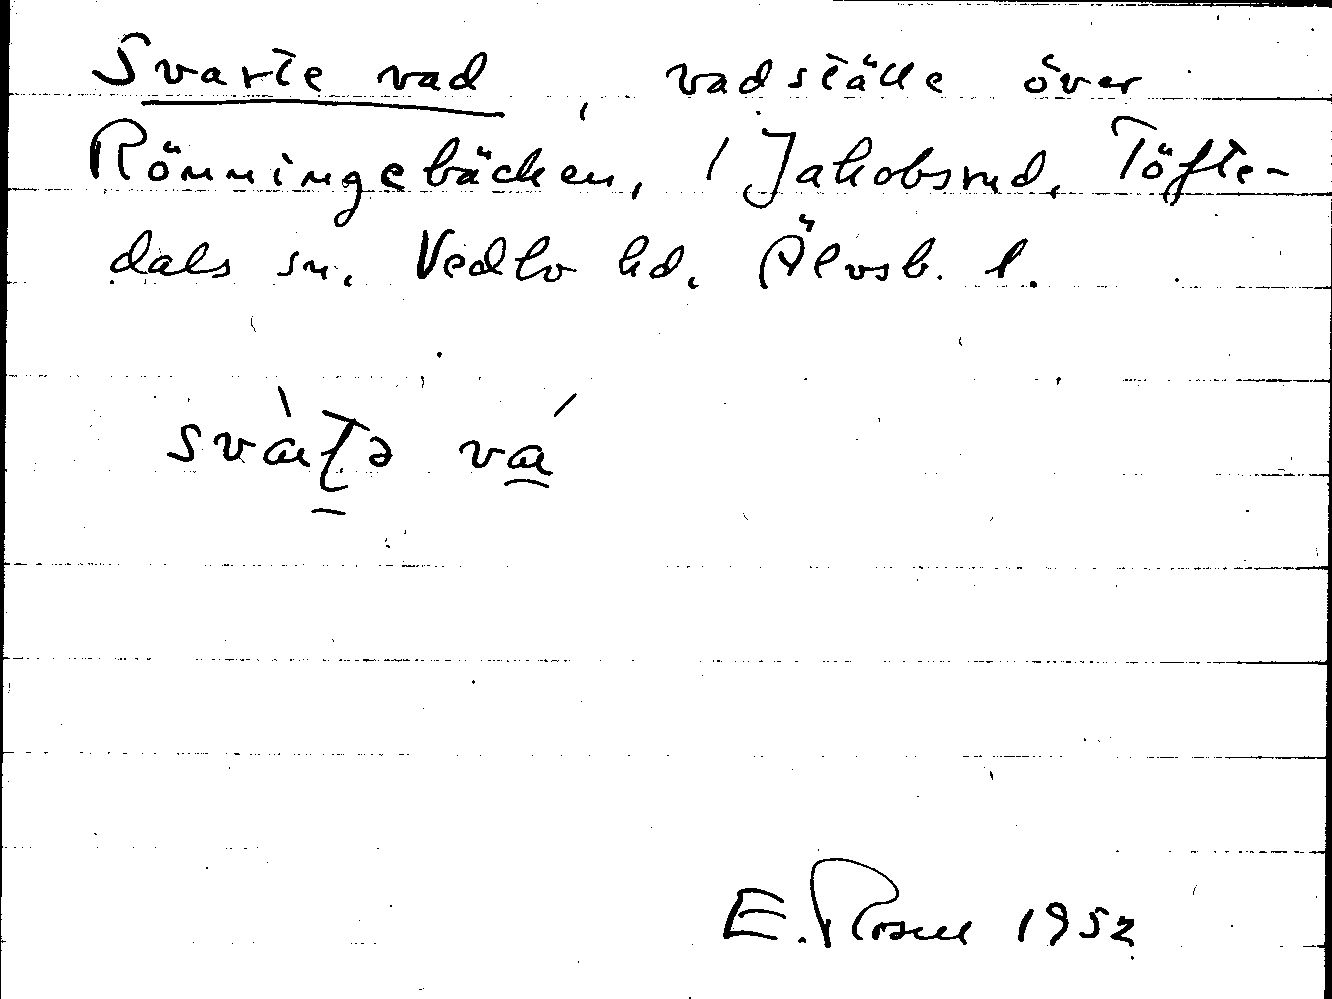 Svarte vad, vadställe över
Rönningebäcken, / Jakobsrud, Töfte-
dals sn. Vedbo hd. Älvsb. l.
svàʈə vá
E. Rosell 1952